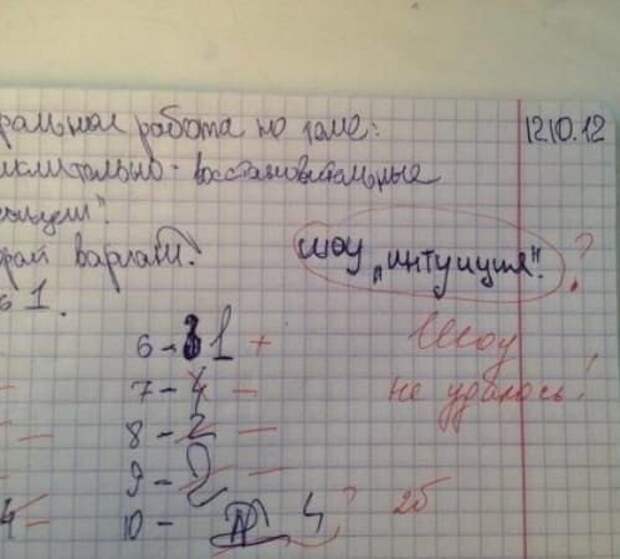 ральная работа по теме: 12.10.12
ислительно-восстановительные
акции".
орой вариант.
шоу "интуиция". ?
6 1.
6 - 1 +
Шоу
7 - 4 -
не удалось!
8 - 2 -
9 - 2 -
4 -
10 - 4 ?
2б